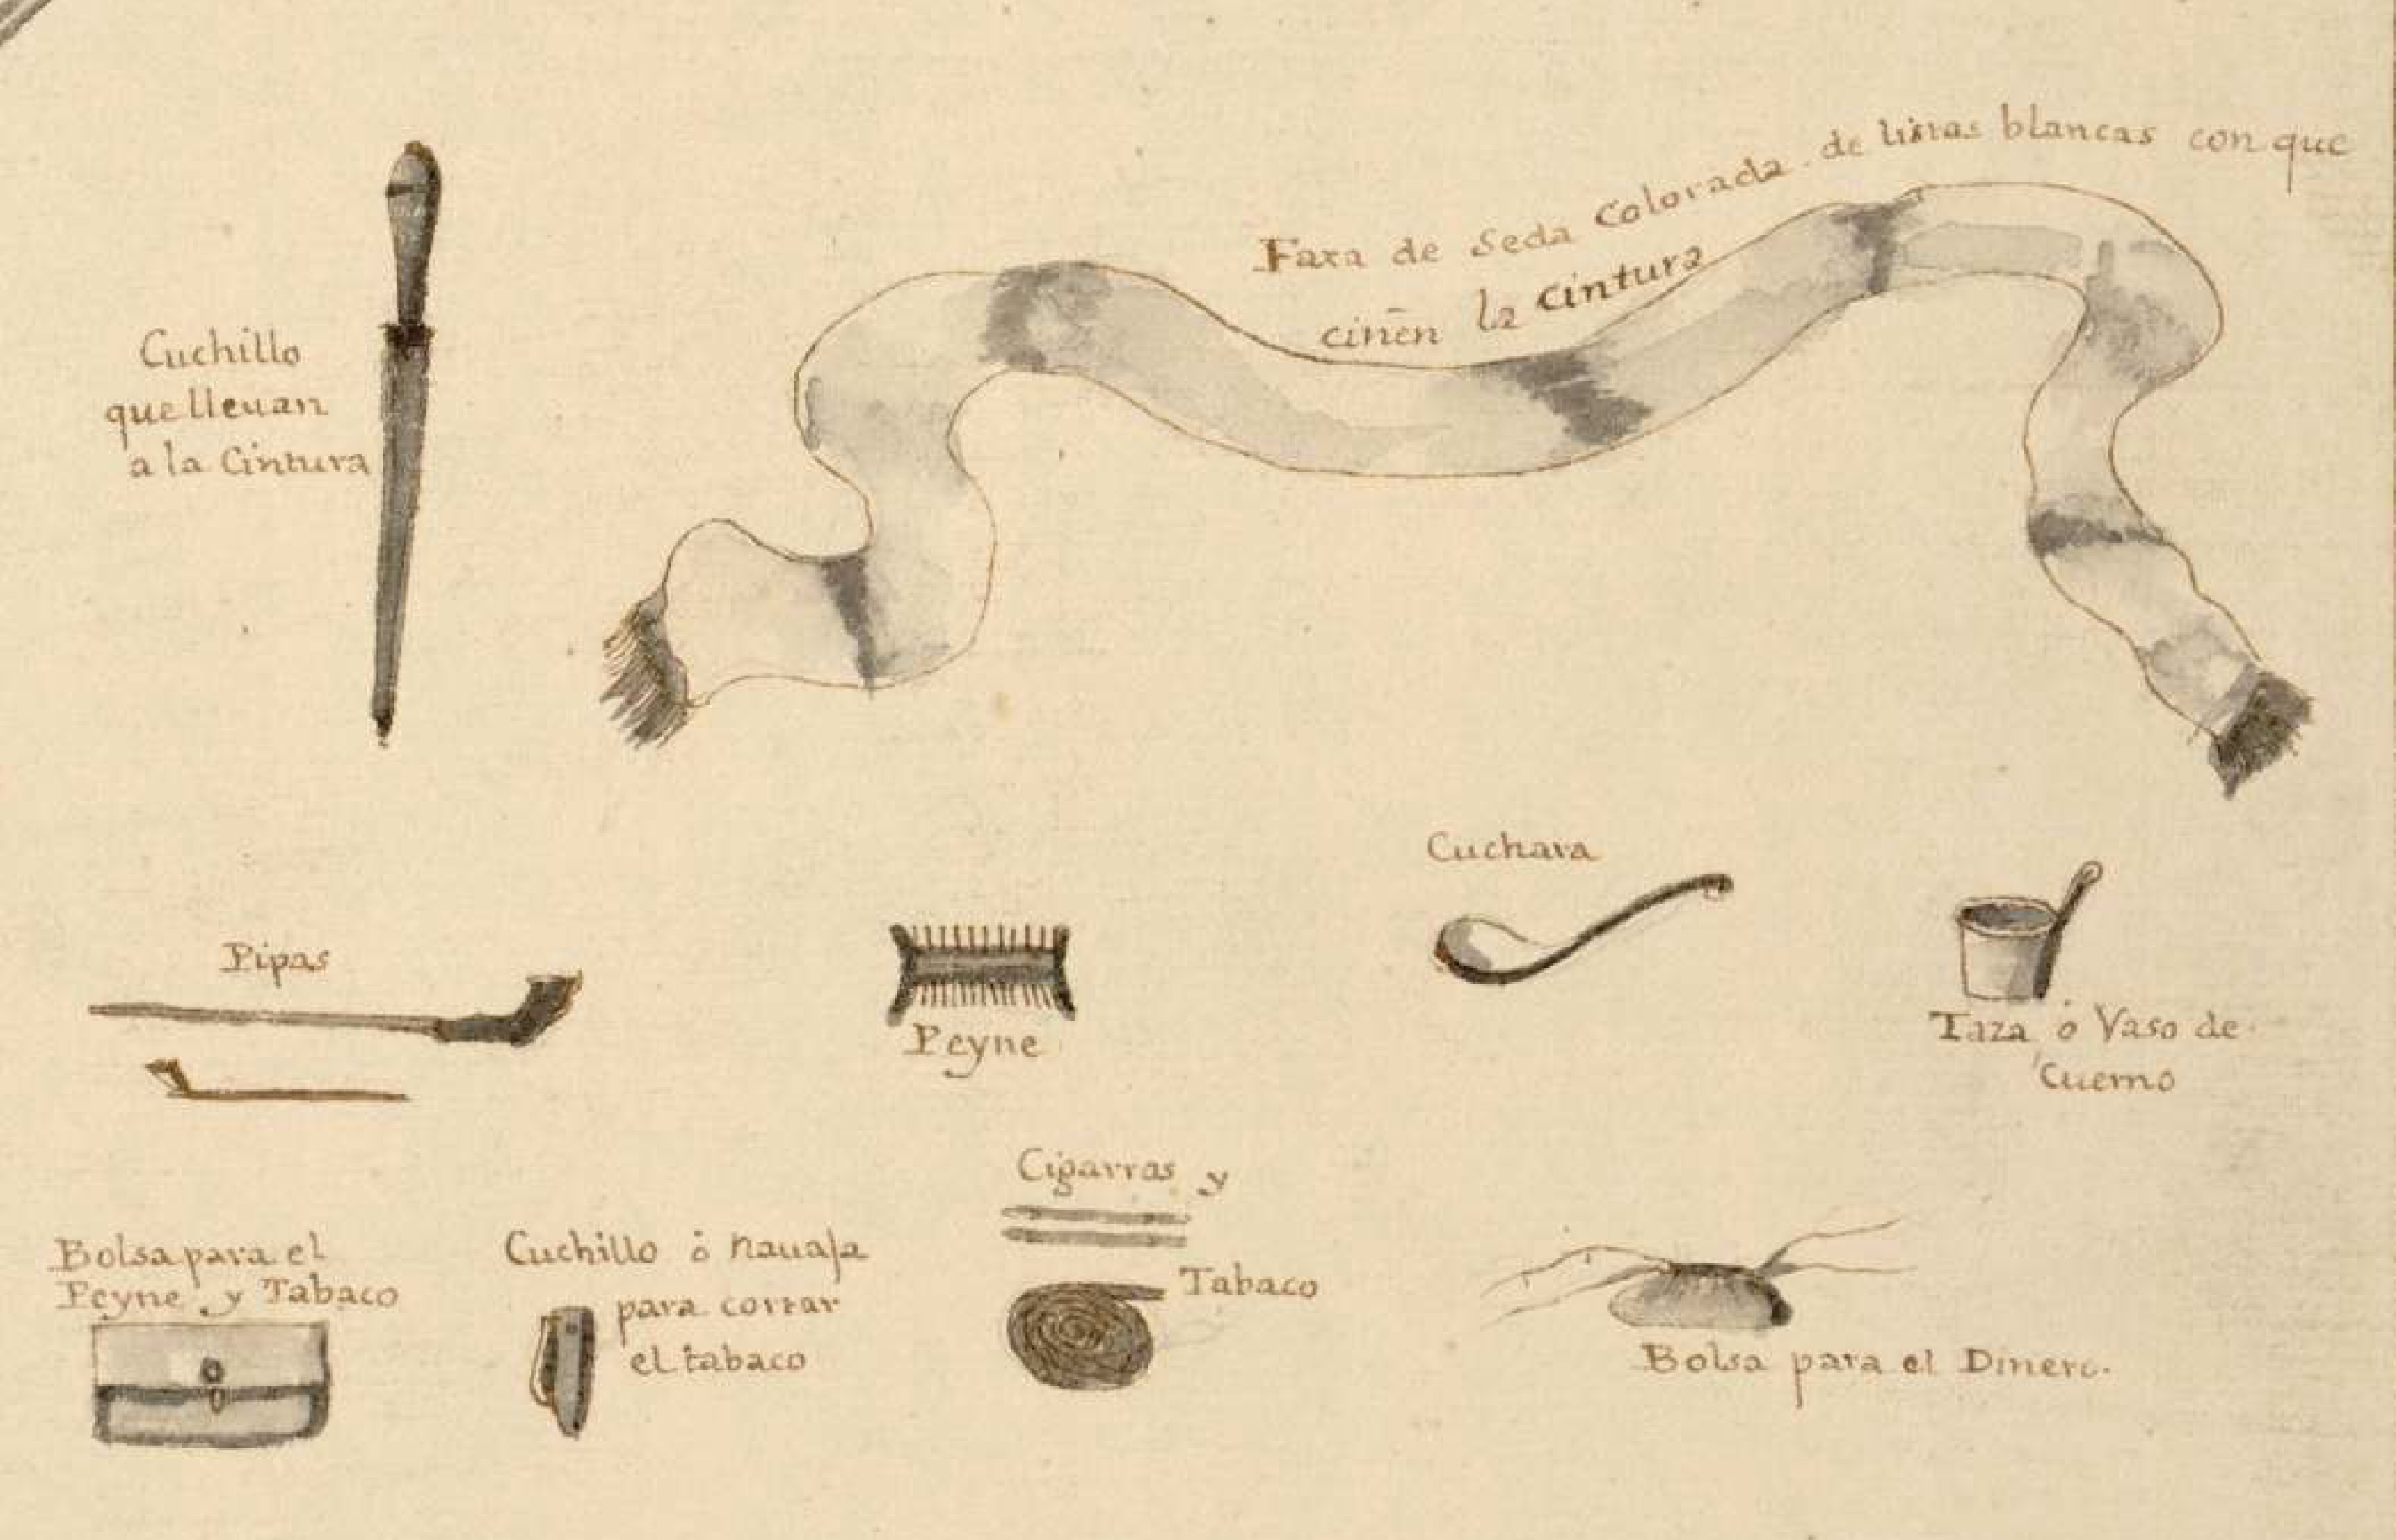 Faxa de Seda Colorada de listas blancas con que
ciñen la cintura
Cuchillo
que lleuan
a la Cintura
Cuchara
Pipas
Peyne
Taza ó Vaso de
Cuerno
Cigarras y
Tabaco
Bolsa para el
Peyne y Tabaco
Cuchillo ó nauaja
para cortar
el tabaco
Bolsa para el Dinero.